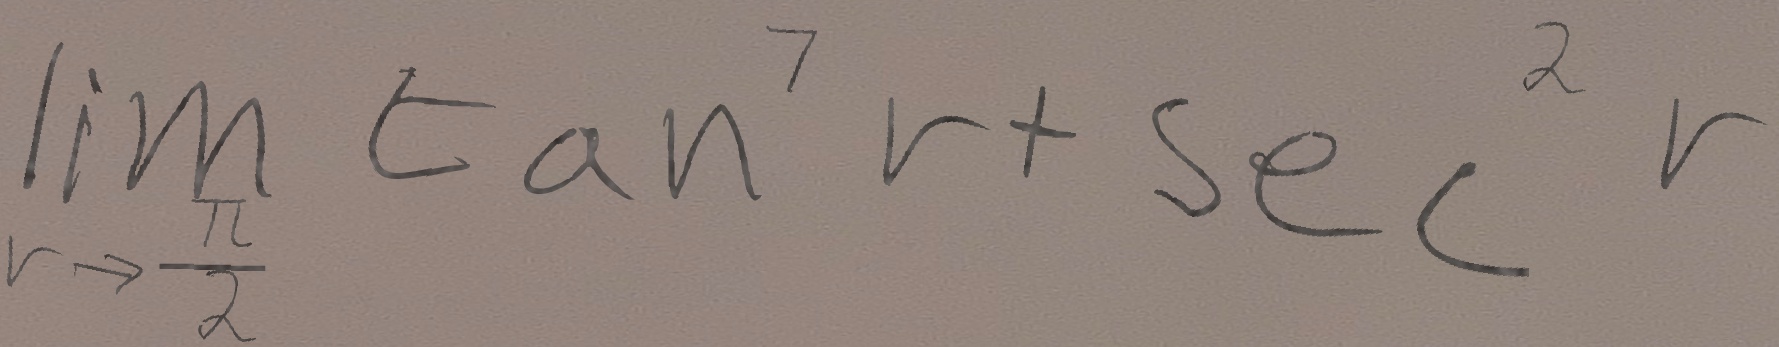 \lim_{r \to \frac{\pi}{2}} \tan^7 r + \sec^2 r